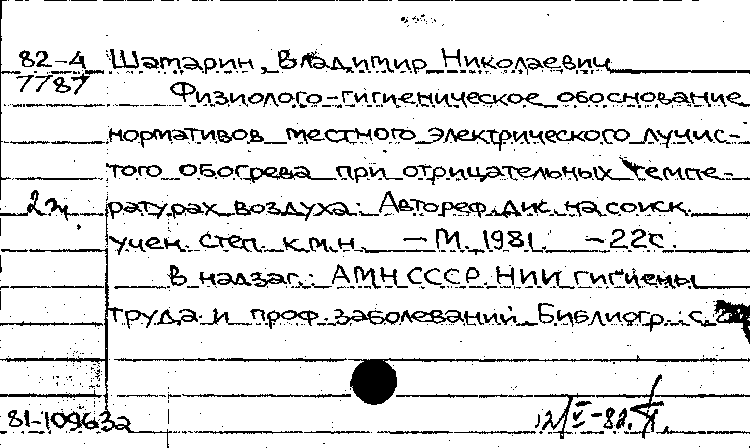 82-4 Шатарин, Владимир Николаевич
7787
Физиолого-гигиеническое обоснование
нормативов местного электрического лучис-
того обогрева при отрицательных темпе-
2 э. ратурах воздуха: Автореф. дис. на соиск.
учен. степ. к.м.н. — М., 1981. — 22с.
В надзаг.: АМН СССР. НИИ гигиены
труда и проф. заболеваний. Библиогр.: с.
81-109632 12/V-82.